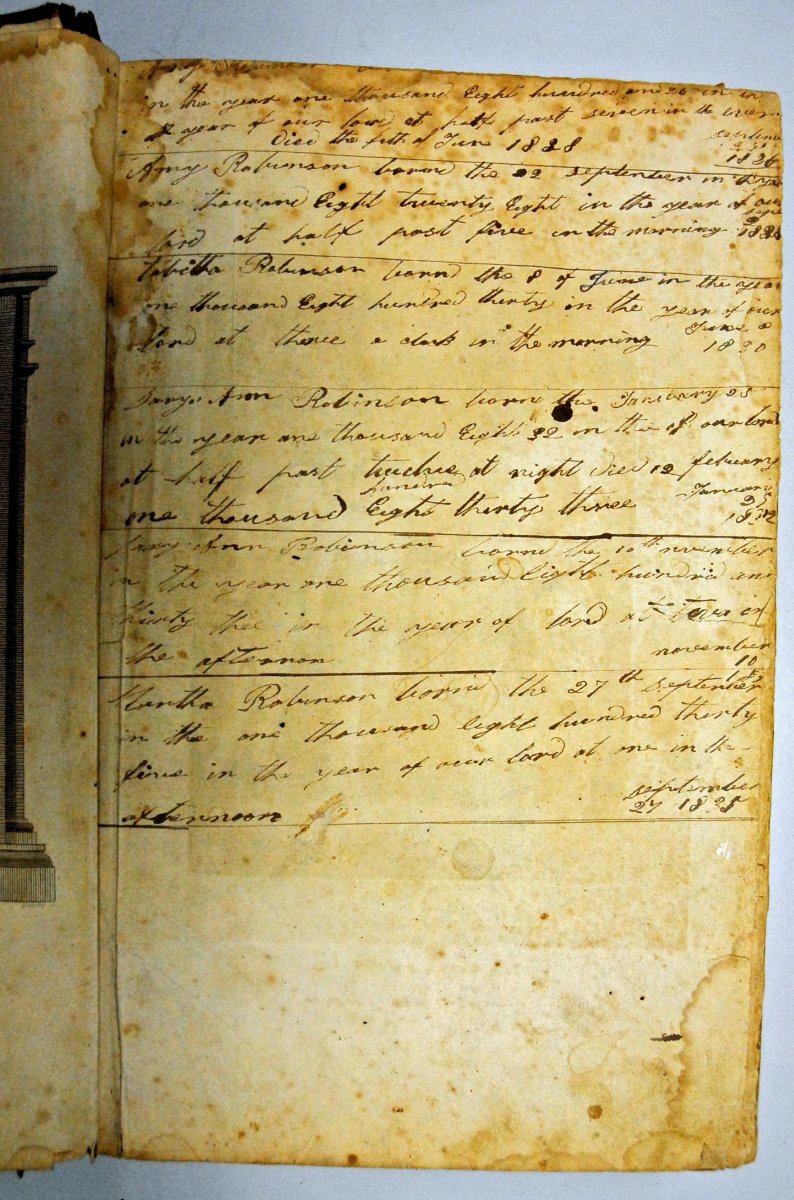 in the year one thousand Eight hundred and 26 in
year of our lord at half past seven in the
died the fifth of June 1828 september
1826
Amy Robinson bornd the 22 september in the year
one thousand Eight twenty Eight in the year of our
lord at half past five in the morning
tabitha Robinson bornd the 8 of June in the year
one thousand Eight hundred thirty in the year of our
lord at three a clock in the morning June 8
1830
Mary Ann Robinson bornd the Januuary 25
in the year one thousand Eight 32 in the of our lord
at half past twelve at night died 12 febuary
hundred January
one thousand Eight thirty three 25
1832
Mary Ann Robinson bornd the 10th november
in the year one thousand Eight hundred and
thirty thee in the year of lord at two in
the afternon november
10
Martha Robinson bornd the 27th september
in the one thousand eight hundred thirty
five in the year of our lord at one in the
afternoon september
27 1835